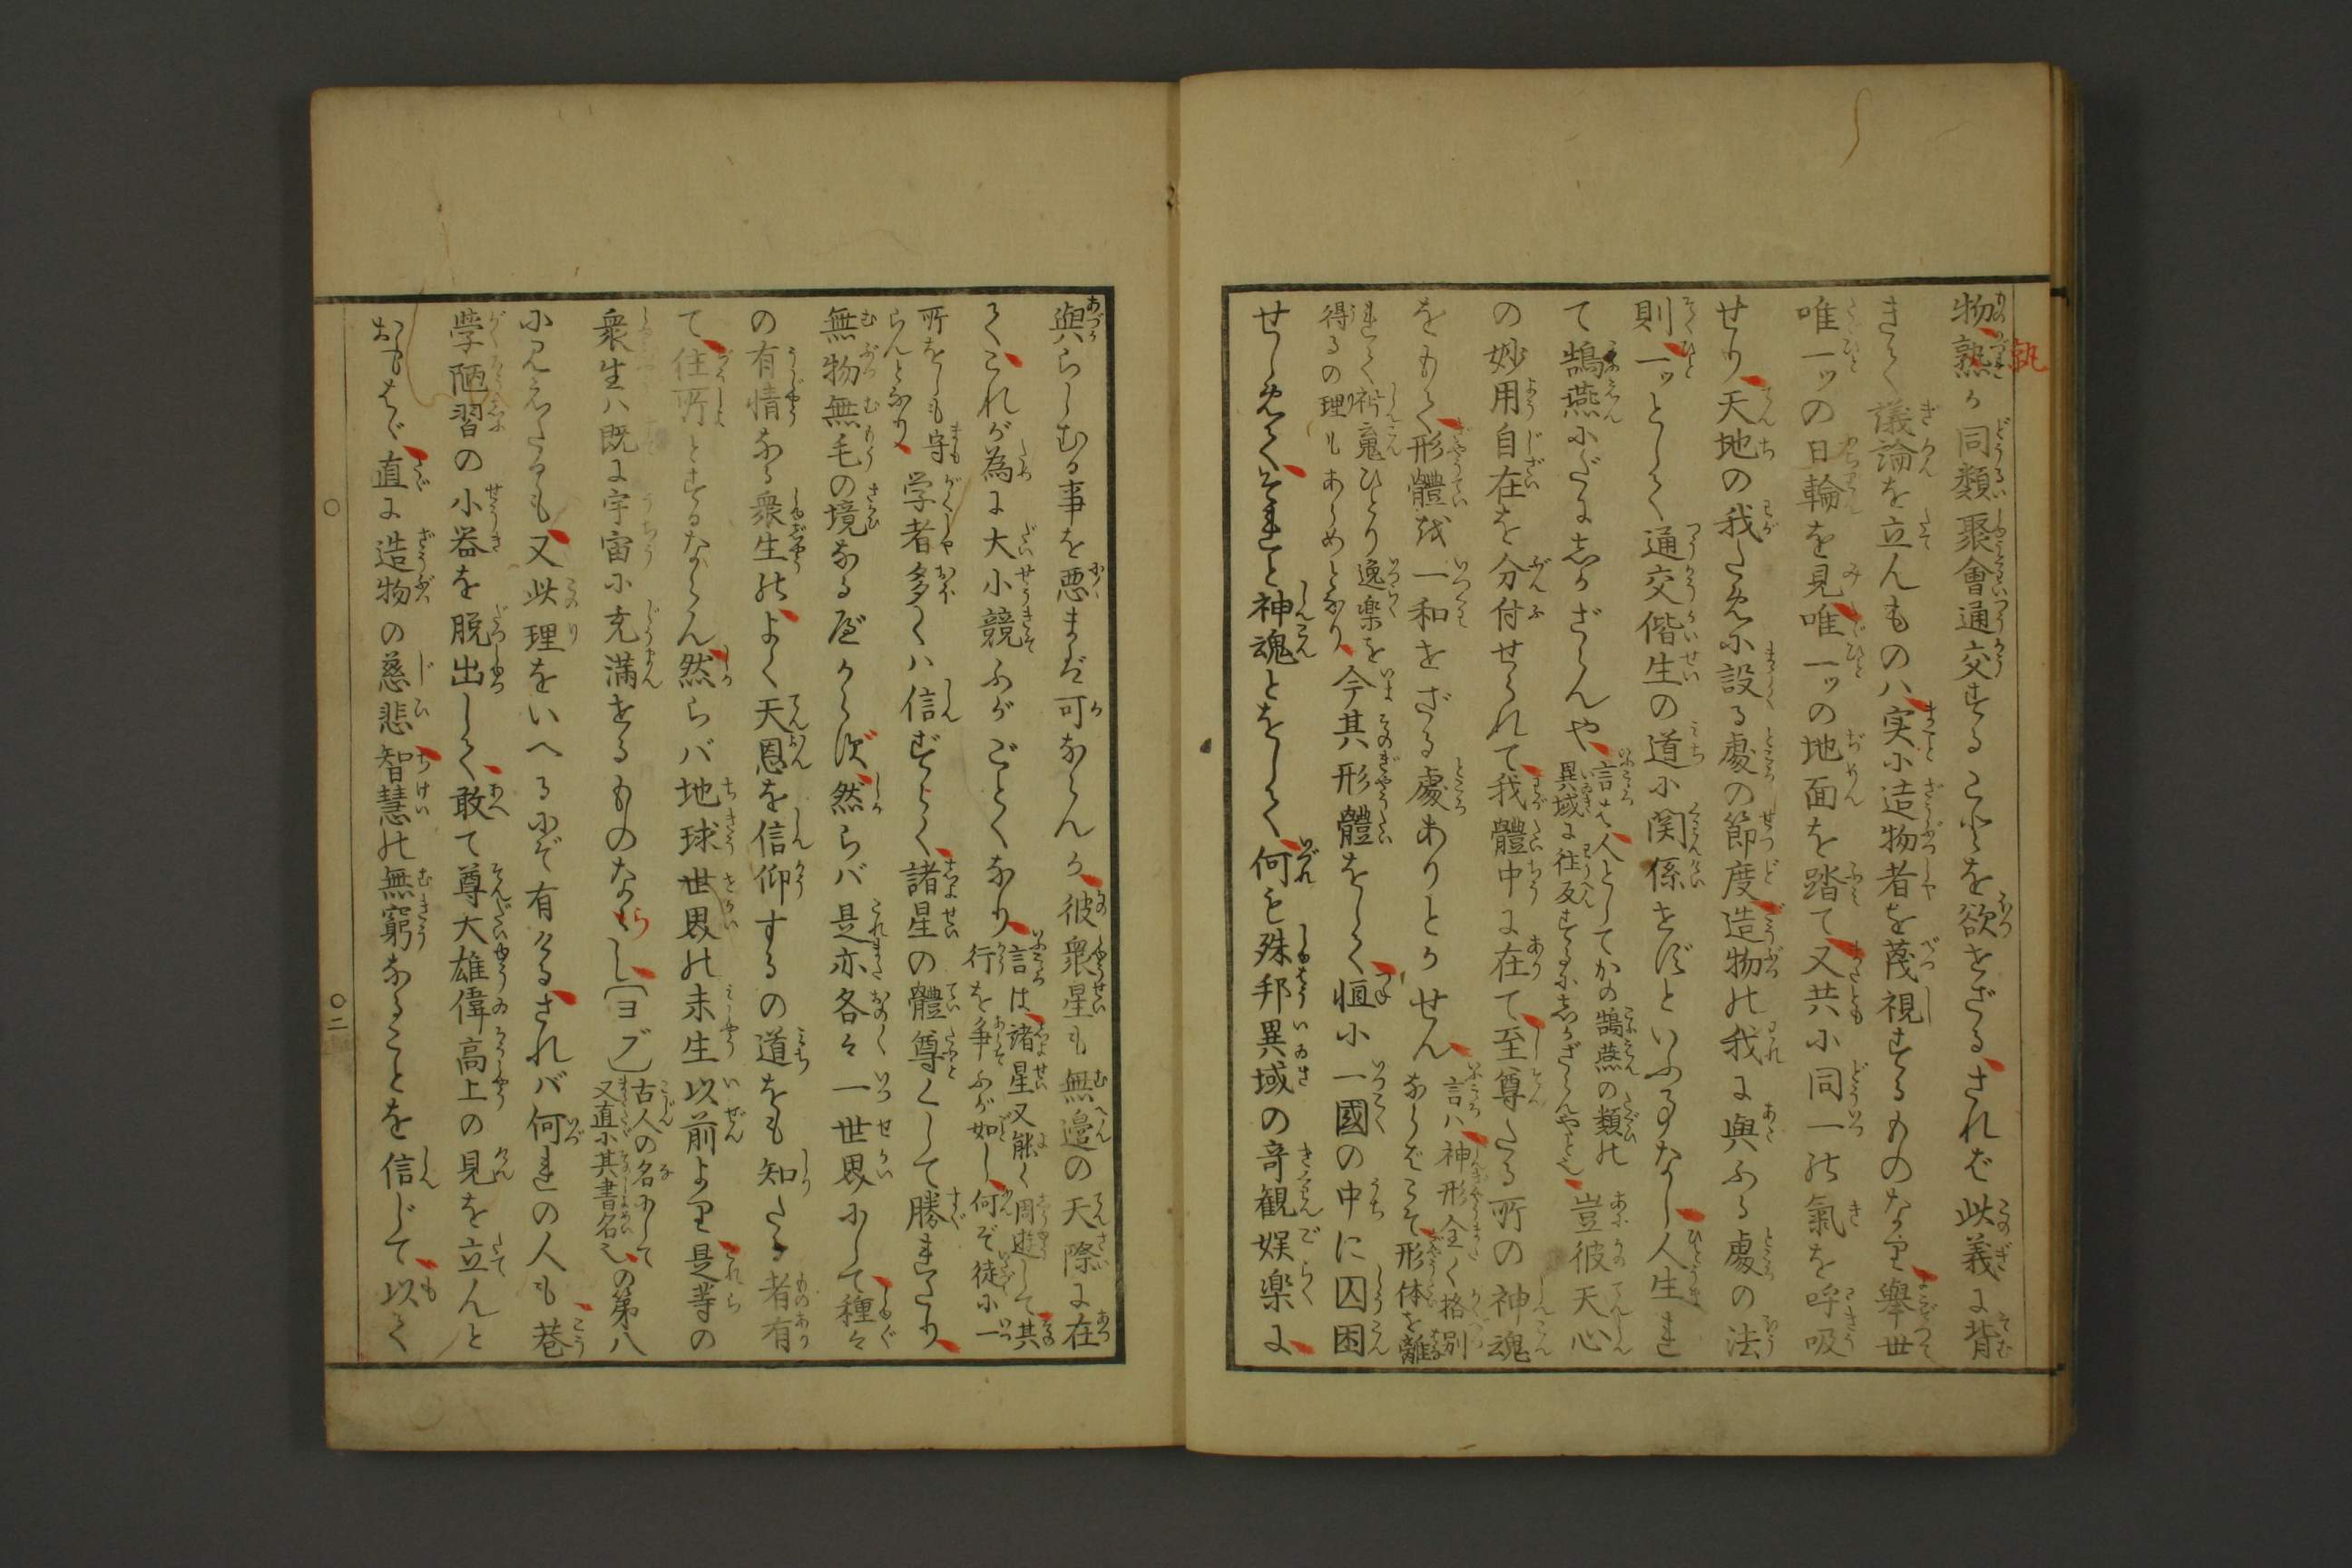 物熟か同類聚會通交することを欲せざるされば此義に背
きて議論を立んものハ実に造物者を蔑視するものなり舉世
唯一ツの日輪を見唯一ツの地面を踏て又共に同一の氣を呼吸
せり天地の我ために設る處の節度造物の我に與ふる處の法
則一ツとして通交偕生の道に関係せずといふ事なし人生れ
て鵠燕にだにしかざらんや言は人としてかの鵠燕の類の
異域に往反するにしかざらんやと也豈彼天心
の妙用自在を分付せられて我體中に在て至尊たる所の神魂
をもて形體或一和せざる處ありとかせん言ハ神形全く格別
ならばこそ形体を離
れて神䰟ひとり逸楽を
得るの理もあらめとなり今其形體をして恒に一國の中に囚困
せしめてそれと神魂とをして何を殊邦異域の奇観娯楽に
與らしむる事を悪まば可ならんか彼衆星も無邉の天際に在
てこれが為に大小競ふがごとくなり言は諸星又能く周遊して其
行を争ふが如し何ぞ徒に一
所をしも守
らんとなり学者多くハ信ずらく諸星の體尊くして勝れたり
無物無毛の境なるべからず然らバ是亦各々一世界にして種々
の有情なる衆生のよく天恩を信仰するの道をも知たる者有
て住所とするならん然らバ地球世界の未生以前より是等の
衆生ハ既に宇宙に充満せるものならし〔ヨブ〕古人の名にして
又直に其書名也の第八
に見えたるも又此理をいへるにぞ有けるされバ何れの人も巷
学陋習の小器を脱出して敢て尊大雄偉高上の見を立んと
おもはゞ直に造物の慈悲智慧の無窮なることを信じて以て
〇二
執
ら